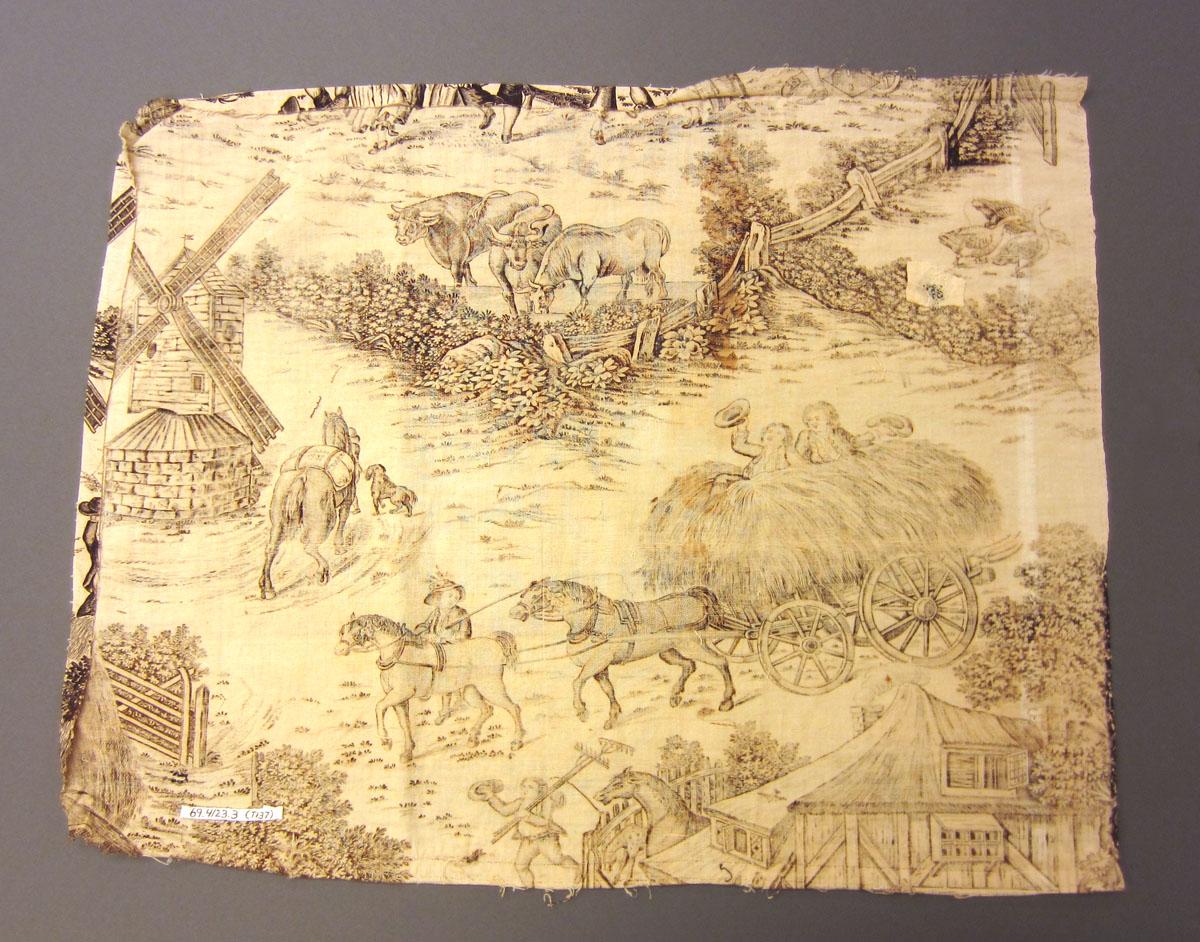 69.4123.3 (T137)